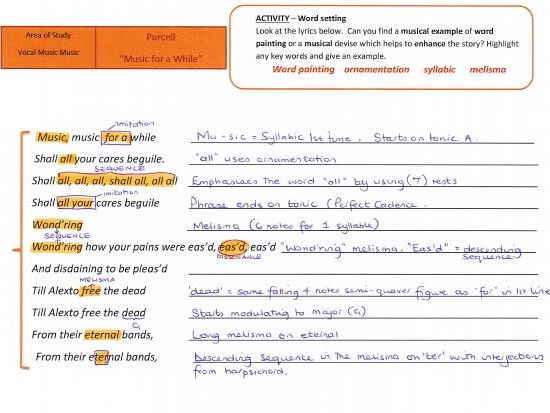 Area of Study
Vocal Music Music
Purcell
"Music for a While"
ACTIVITY – Word setting
Look at the lyrics below. Can you find a musical example of word
painting or a musical devise which helps to enhance the story? Highlight
any key words and give an example.
Word painting ornamentation syllabic melisma
imitation
Music, music for a while Mu-sic = Syllabic 1st time. Starts on tonic A.
Shall all your cares beguile. "all" uses ornamentation
SEQUENCE
Shall all, all, all, shall all, all all Emphasises the word "all" by using (7) rests
imitation
Shall all your cares beguile Phrase ends on tonic (Perfect Cadence.
Wond'ring Melisma (6 notes for 1 syllable)
SEQUENCE
Wond'ring how your pains were eas'd, eas'd, eas'd "Wond'ring" melisma. "Eas'd" = descending
DISSONANCE sequence
And disdaining to be pleas'd
MELISMA
Till Alexto free the dead 'dead' = same falling 4 notes semi-quaver figure as "for" in 1st line
Till Alexto free the dead Starts modulating to major (G)
G
From their eternal bands, Long melisma on eternal
From their eternal bands, Descending sequence in the melisma on 'ter' with interjections
from harpsichord.